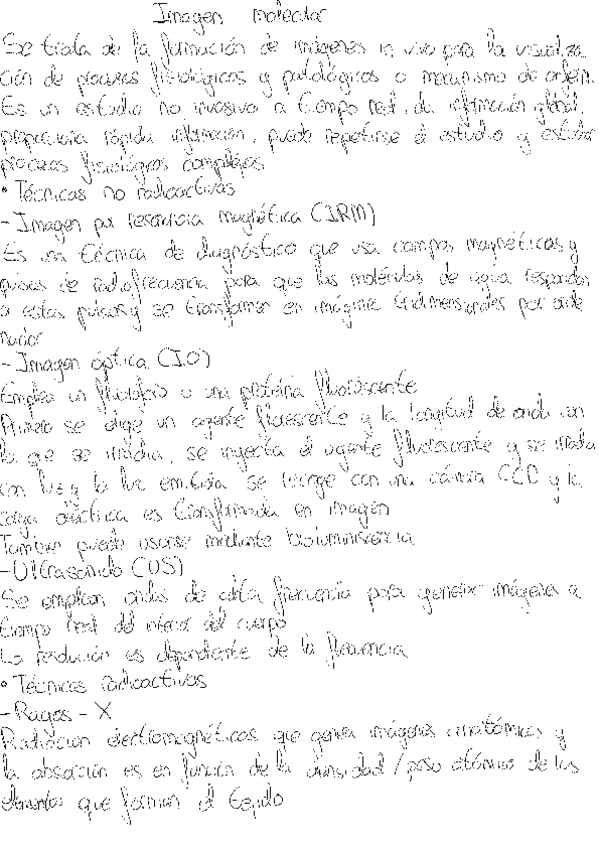 Imagen molecular
Se trata de la formación de imágenes in vivo para la visualiza
ción de procesos fisiológicos y patológicos o mecanismo de
Es un estudio no invasivo a tiempo real, da información global,
proporciona rápida información, puede repetirse el estudio y estudiar
procesos fisiológicos complejos
• Técnicas no radioactivas
- Imagen por resonancia magnética (IRM)
Es una técnica de diagnóstico que usa campos magnéticos y
pulsos de radiofrecuencia para que las moléculas de agua respondan
a estos pulsos y se transforman en imágenes tridimensionales por orde
nador
- Imagen óptica (IO)
Emplea un fluoróforo o una proteína fluorescente
Primero se elige un agente fluorescente y la longitud de onda con
la que se irradia, se inyecta el agente fluorescente y se irradia
con luz y la luz emitida se recoge con una cámara CCD y la
carga eléctrica es transformada en imagen
También puede usarse mediante bioluminiscencia
- Ultrasonido (US)
Se emplean ondas de alta frecuencia para generar imágenes a
tiempo real del interior del cuerpo
La resolución es dependiente de la frecuencia
• Técnicas radioactivas
- Rayos - X
Radiación electromagnéticas que genera imágenes anatómicas y
la absorción es en función de la densidad / peso atómico de los
elementos que forman el tejido